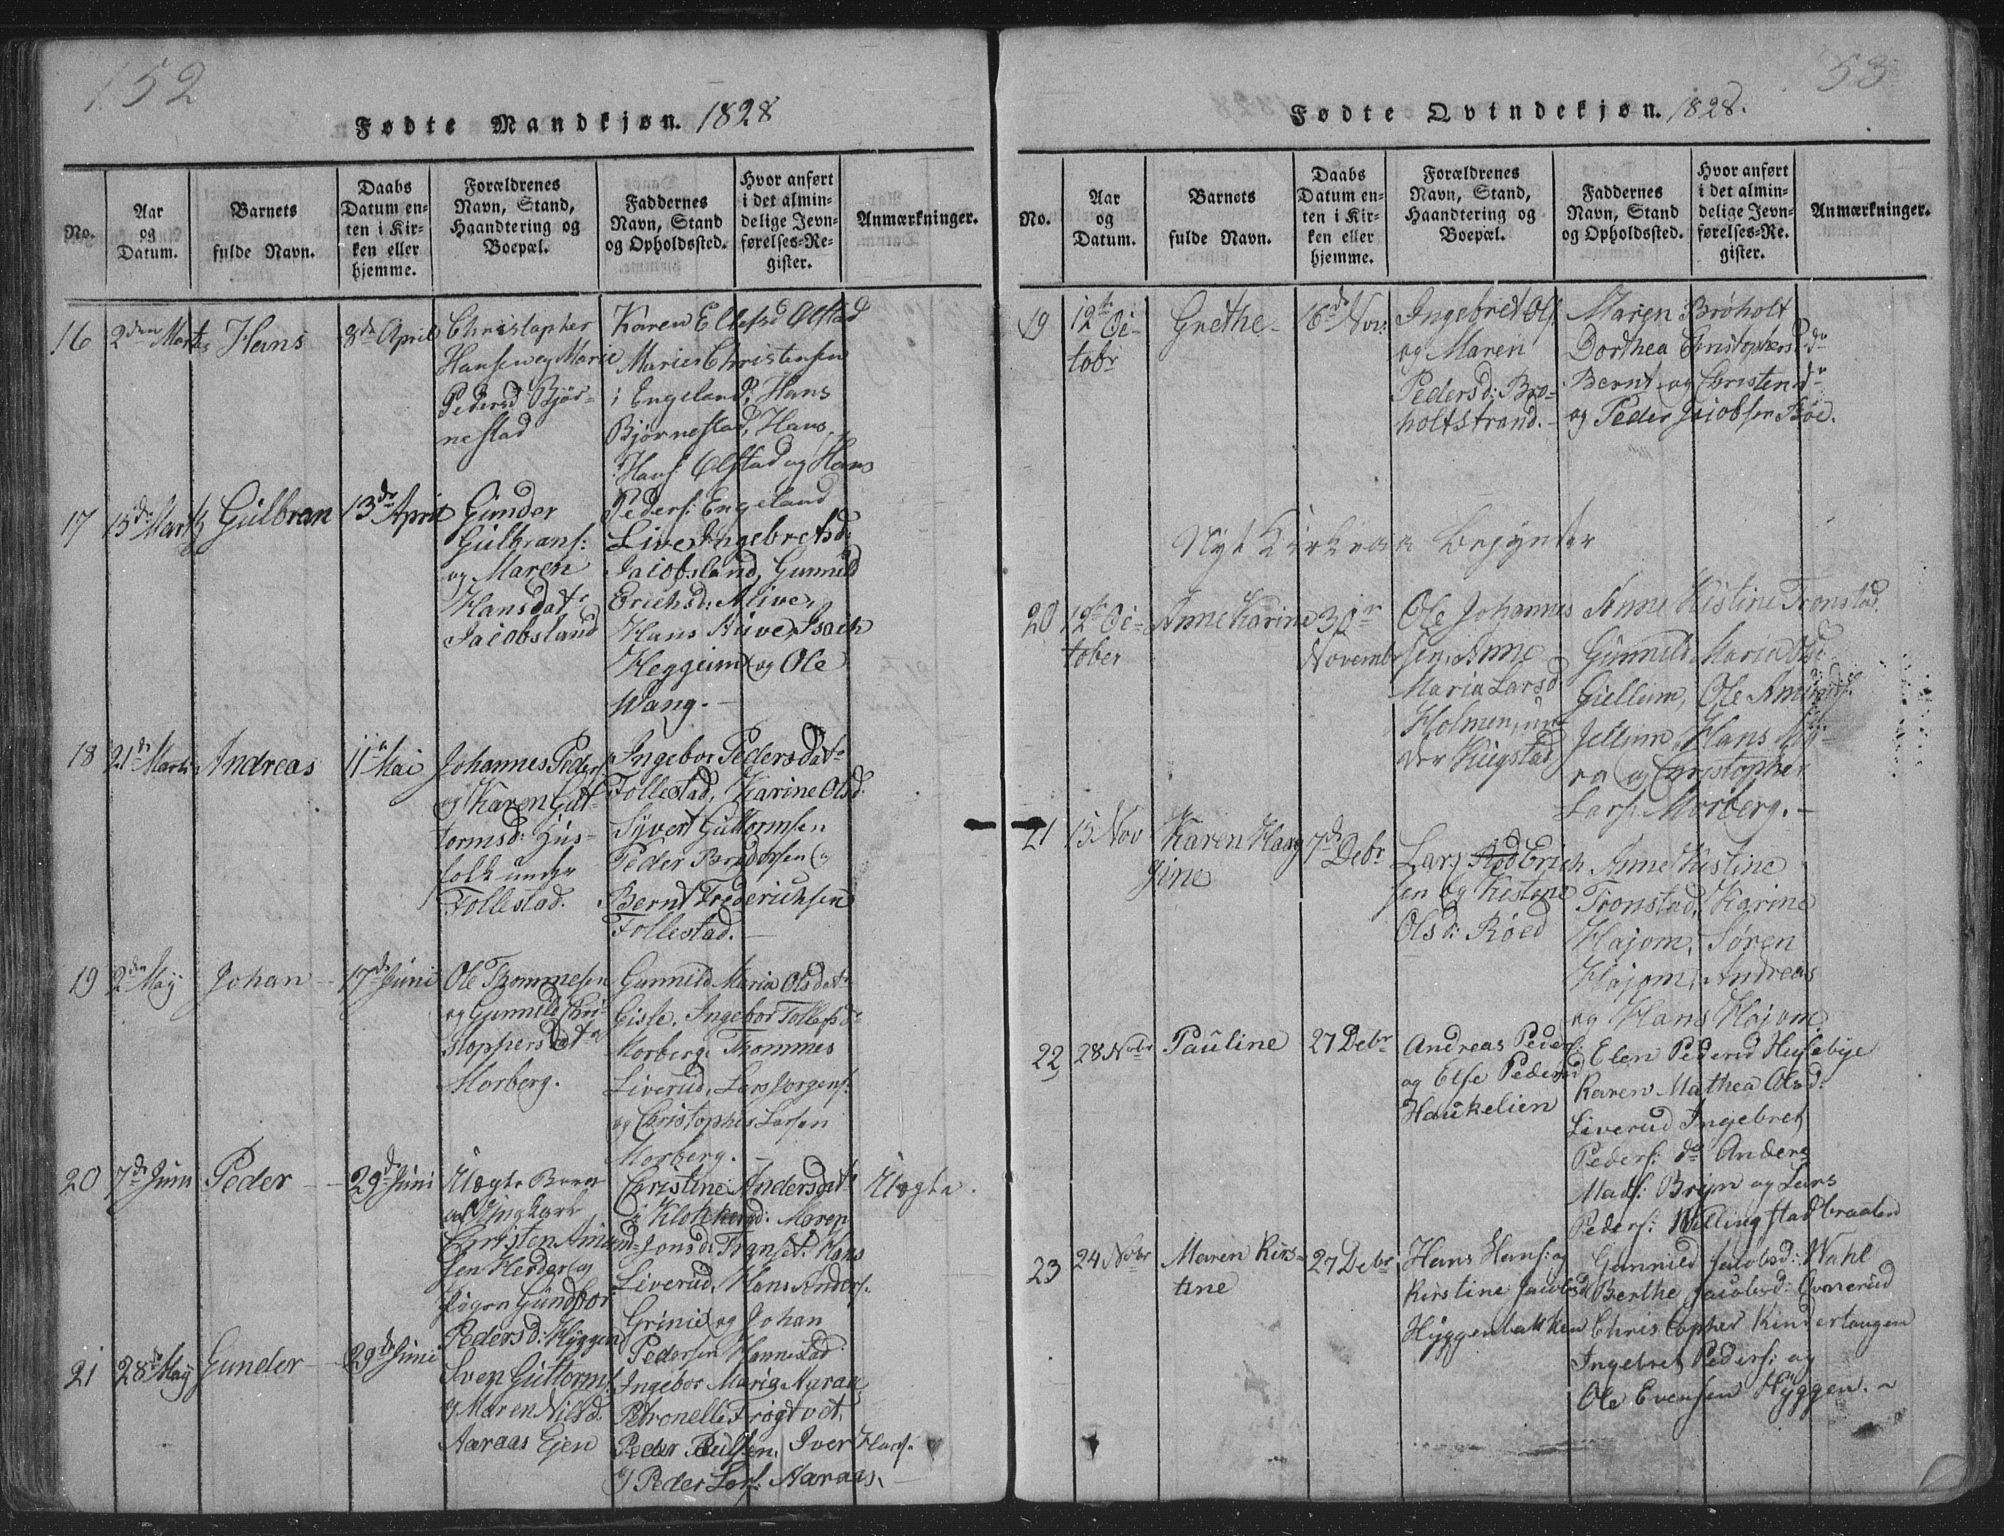 152
Fødte Mandkjøn. 1828
No.
Aar og Datum.
Barnets fulde Navn.
Daabs Datum enten i Kirken eller hjemme.
Forældrenes Navn, Stand, Haandtering og Boepæl.
Faddernes Navn, Stand og Opholdssted.
Hvor anført i det almindelige Jevnførelses-Register.
Anmærkninger.
16 2den Marts Hans 8de April
Christopher
Hansen og Marie
Pedersd Bjør-
nestad
Karen Ellefsd Olstad
Marie Christensen
i Engeland, Hans
Bjørnestad, Hans
Hans: Olstad og Hans
Peders: Engeland
17 15de Marts Gulbran 13de April
Gunder
Gulbrans:
og Maren
Hansdatr
Jacobsland
Live Ingebretsd:
Jacobsland, Gunnild
Erichsd: Alive,
Hans Alive, Isach
Heggum og Ole
Wang.
18 21de Marts Andreas 11te Mai
Johannes Peders
og Karen Gut-
tormsd: Hus-
folk under
Follestad.
Ingebor Pedersdatr
Follestad, Karine Olsd.
Syvert Guttormsen
Peder
Bernt Frederichsen
Follestad.
19 2den May Johan 17de Juni
Ole Thommesen
og Gunnild Chri-
stoppersdatr
Morberg.
Gunnild Maria Olsdatr
Gisle, Ingebor Tollefsdr
Morberg, Thommes
Liverud, Lars Jorgens:
og Christopher Larsen
Morberg.
20 7de Juni Peder 29de Juni
Uægte Barn
af Ungkarl
Christen Amund-
sen Herder og
Pigen Gundbor
Pedersd: Hyggen
Christine Andersdatr
Maren
Jonsd: Transet: Hans
Liverud, Hans Anders.
Grini og Johan
Pedersen Hannestad
Uægte.
21 28de May Gunder 29de Juni
Sven Guttorms
og Maren Nilsd.
Aaraas Ejen
Ingebor Maria Aaraas
Petronelle Frogtvet,
Peder Paulsen, Iver Hans.
og Peder Lars: Aaraas,
53
Fødte Qvindekjøn. 1828.
No.
Aar og Datum.
Barnets fulde Navn.
Daabs Datum enten i Kirken eller hjemme.
Forældrenes Navn, Stand, Haandtering og Boepæl.
Faddernes Navn, Stand og Opholdssted.
Hvor anført i det almindelige Jevnførelses-Register.
Anmærkninger.
19 12te Oc-
tobr
Grethe 16de Nov:
Ingebret Ols
og Maren
Pedersd: Brø-
holtstrand.
Maren Brøholt
Dorthea Christophersd do
Bernt og Christen do
og Peder Jacobsen Bøe.
Nyt Kirkeaar begynder
20 12te Oc-
tober
Anne Karine 30te
Novembr
Ole Johannes
sen, Anne
Maria Larsd
Holmen, un-
der Kügstad
Anne Kistine Tronstad,
Gunnild Maria
Gjellum, Ole Amunds.
Jellum, Hans My-
ra og Christopher
Lars: Morberg.
21 15 Nov Karen Hans
gine
7de Debr
Lars Erich
sen og Kistine
Olsd: Røed
Anne Kistine
Tronstad, Karine
Hajom, Søren
Hajom, Andreas
og Hans Hajom
22 28 Nobr Pauline 27 Debr
Andreas Peders:
og Else Pedersd
Haukelien
Elen Pedersd Husebye
Karen Mathea Olsd:
Liverud Ingebret
Peders: do Anders
Mads: Bryn og Lars
Peders: Willingstadbraaten
23 24 Nobr Maren Kirs-
tine
27 Debr
Hans Hans: og
Kirstine Jacobsd
Hyggenbakken
Gunnild Jacobsd: Wahl
Berthe Jacobsd: Ovnerud
Christopher Kindertangen
Ingebret Peders: og
Ole Evensen Hyggen.